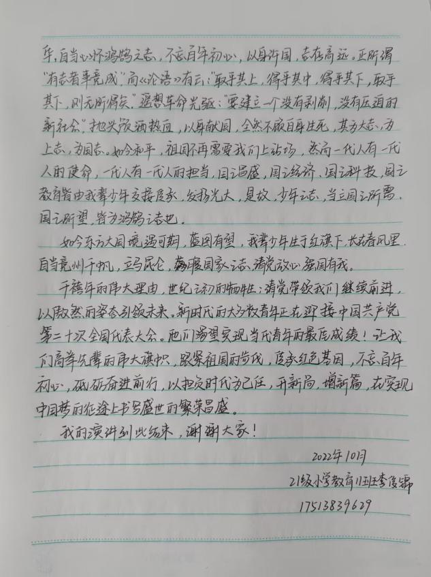 年,自当心怀鸿鹄之志,不忘百年初心,以身许国,志存高远。正所谓
"有志者事竟成"而《论语》有云:"取乎其上,得乎其中,得乎其下,取乎
其下,则无所得矣"遥想革命先驱:"要建立一个没有剥削,没有压迫的
新社会"抛头颅洒热血,以身献国,全然不顾自身生死,其为大志,为
上志,为国志。如今和平,祖国不再需要我们上战场,然而一代人有一代
人的使命,一代人有一代人的担当,国之昌盛,国之经济,国之科技,国之
教育皆由我青少年支接传承,发扬光大,是故,少年之志,当立国之所需,
国之所望,皆为鸿鹄之志也。
如今东方大国境遇可期,蓝图有望,我青少年生于红旗下,长在春风里
自当竞帆,立马昆仑,国家之志,请党放心强国有我。
千禧年的伟大理由,世纪之初的牺牲;请党带领我们继续前进,
以傲然的姿态引领未来。新时代的大多数青年正在迎接中国共产党
第二十次全国代表大会。他们希望实现当代青年的最后成绩!让我
们高举先辈的伟大旗帜,跟紧祖国的步伐,传承红色基因,不忘百年
初心,砥砺奋进前行,以担实时代为己任,开新局,增新篇,在实现
中国梦的征途上书写盛世的繁荣昌盛。
我的演讲到此结束,谢谢大家!
2022年10月
21级小学教育班李俊霖
17513839629